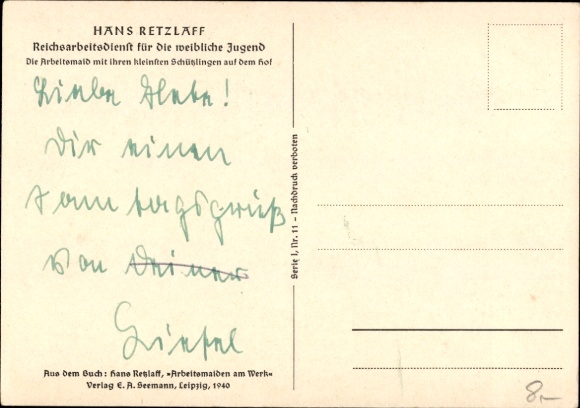 HANS RETZLAFF
Reichsarbeitsdienst für die weibliche Jugend
Die Arbeitsmaid mit ihren kleinsten Schützlingen auf dem Hof
Liebe
Dir einen
von Deiner
Aus dem Buch: Hans Retzlaff, »Arbeitsmaiden am Werk«
Verlag E. A. Seemann, Leipzig, 1940
Serie I, Nr. 11 – Nachdruck verboten
8,–